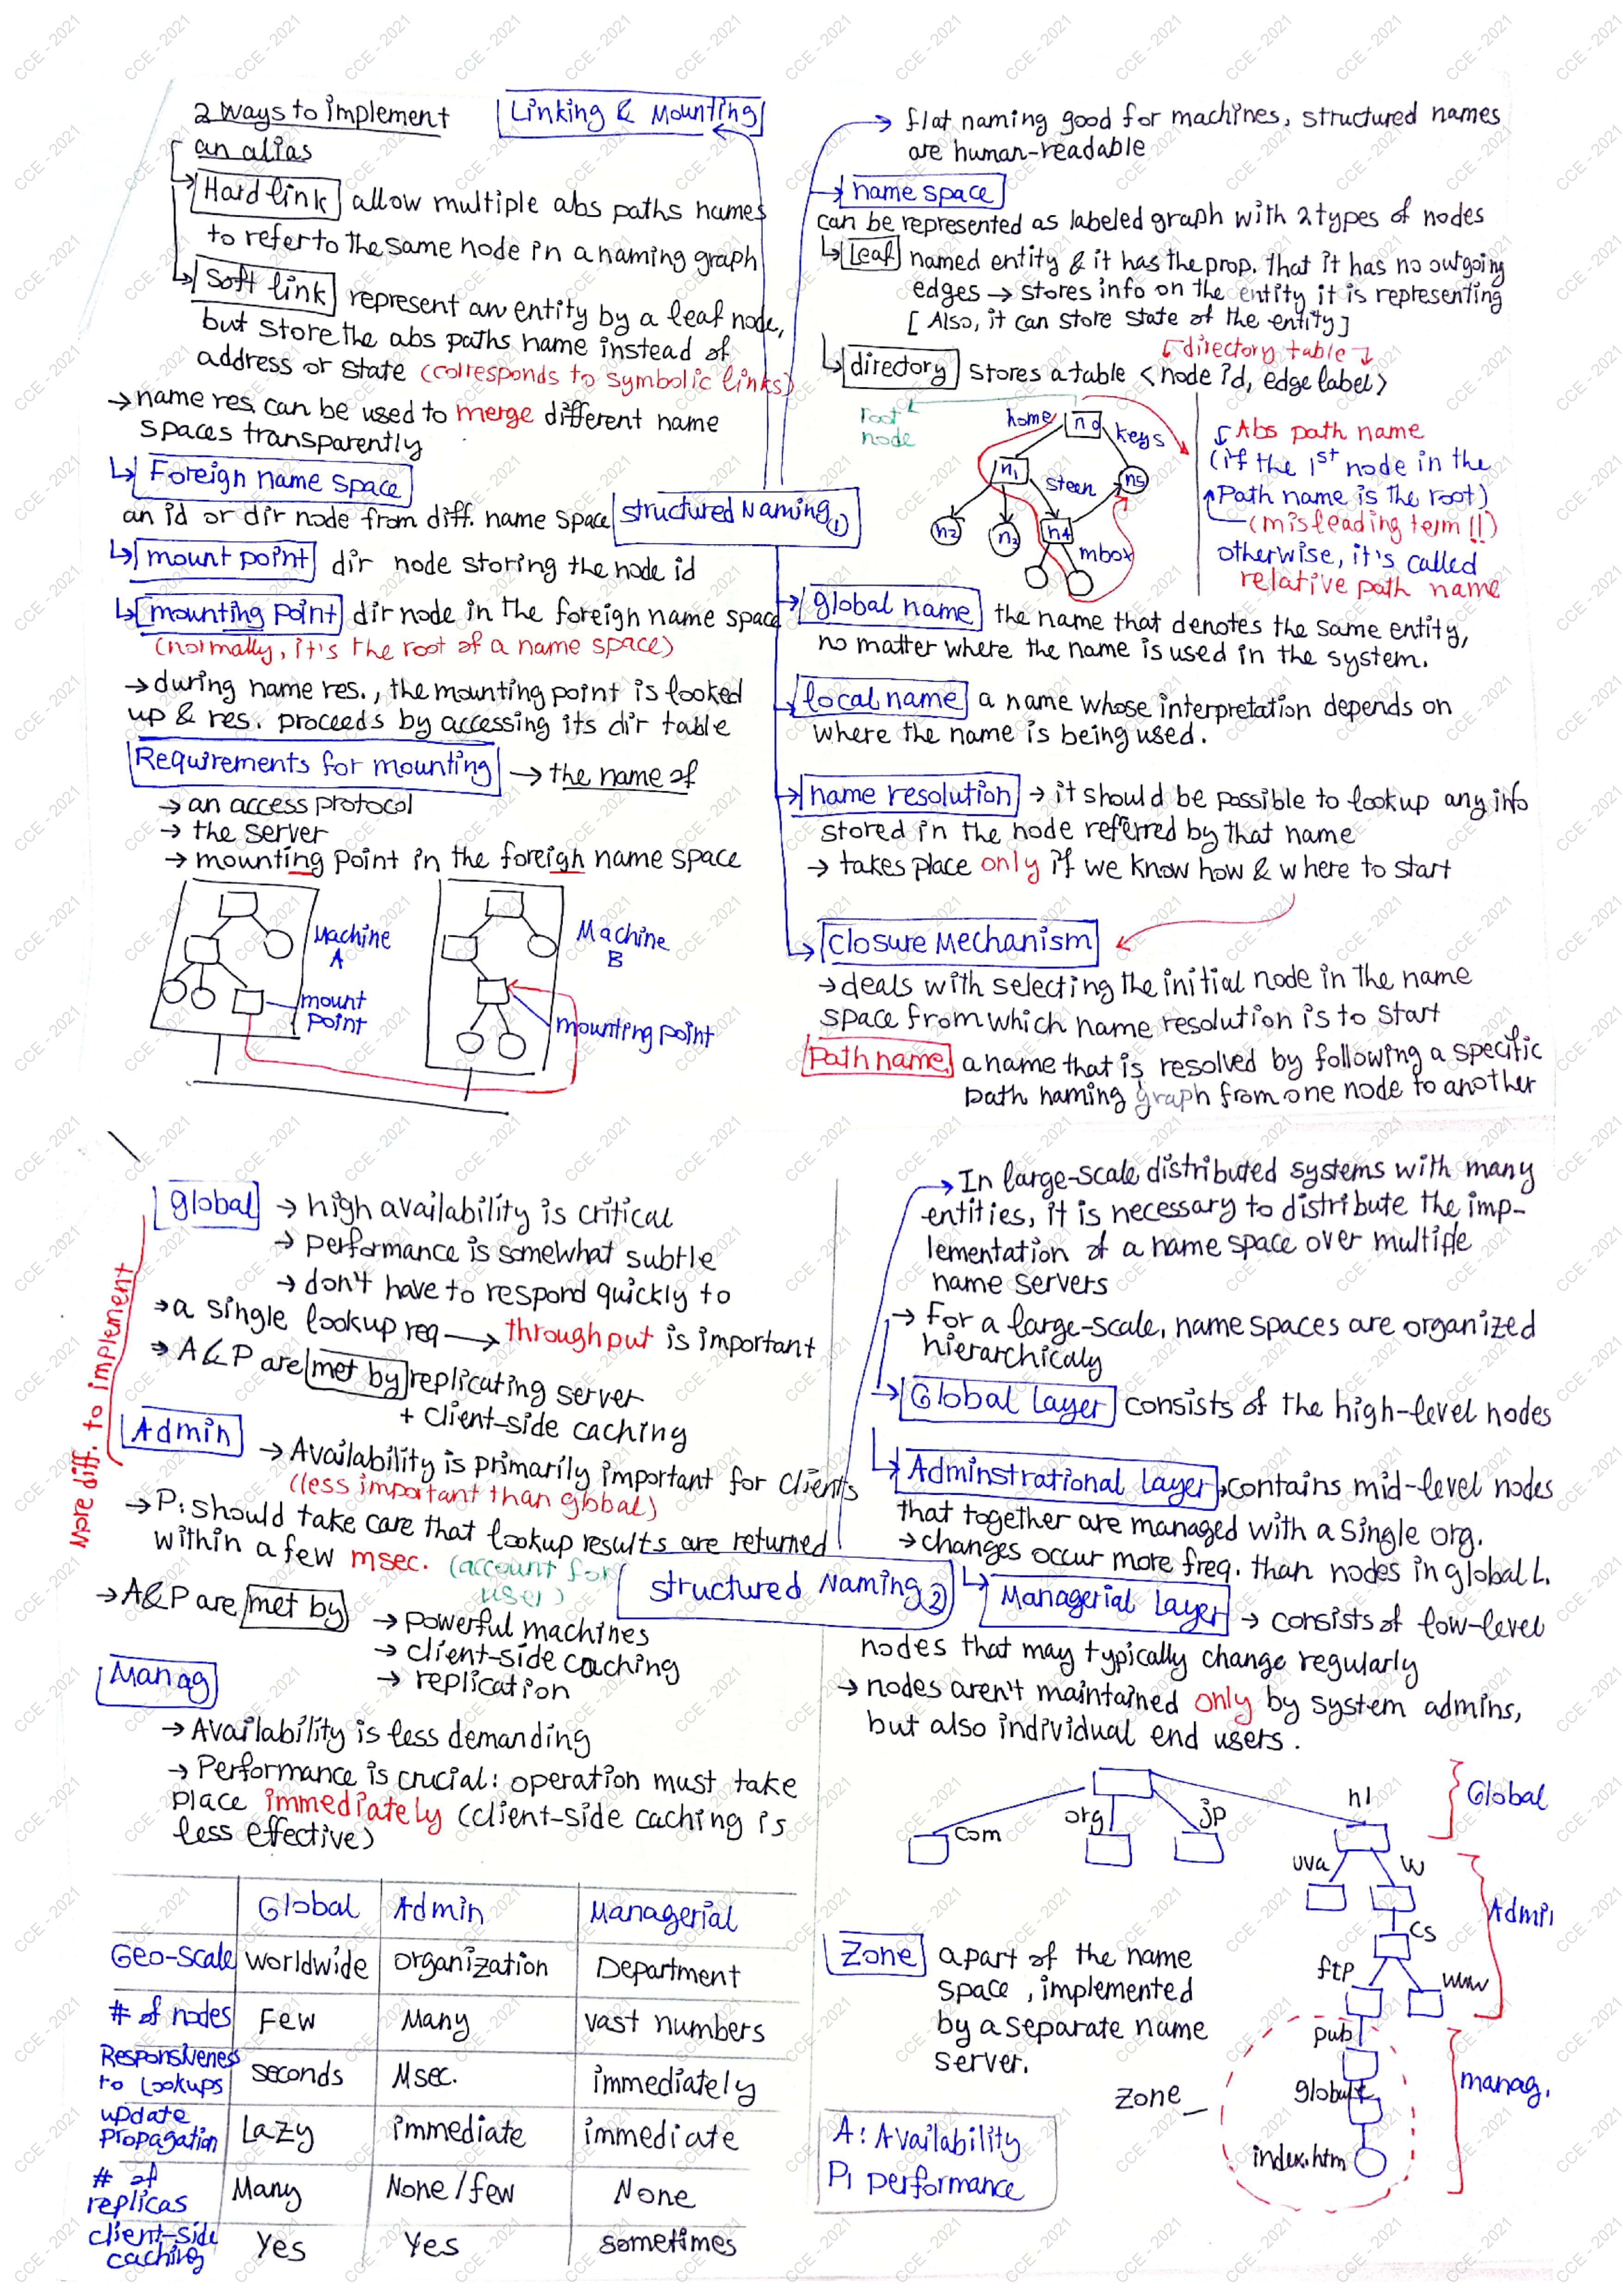 2 ways to implement
an alias
Linking & Mounting
Hard link allow multiple abs paths names
to refer to the same node in a naming graph
Soft link represent an entity by a leaf node,
but store the abs paths name instead of
address or state (corresponds to symbolic links)
→ name res. can be used to merge different name
spaces transparently
Foreign name space
an id or dir node from diff. name space
mount point dir node storing the node id
mounting point dir node in the foreign name space
(normally, it's the root of a name space)
→ during name res., the mounting point is looked
up & res. proceeds by accessing its dir table
Requirements for mounting → the name of
→ an access protocol
→ the server
→ mounting point in the foreign name space
Machine
A
mount
point
Machine
B
mounting point
structured Naming 1
→ flat naming good for machines, structured names
are human-readable
name space
can be represented as labeled graph with 2 types of nodes
Leaf named entity & it has the prop. that it has no outgoing
edges → stores info on the entity it is representing
[Also, it can store state of the entity]
directory table
directory stores a table <node id, edge label>
root
node
home
n0
keys
n1
steen
n5
n2
n3
n4
mbox
Abs path name
(if the 1st node in the
Path name is the root)
(misleading term!!)
otherwise, it's called
relative path name
global name the name that denotes the same entity,
no matter where the name is used in the system.
local name a name whose interpretation depends on
where the name is being used.
name resolution → it should be possible to lookup any info
stored in the node referred by that name
→ takes place only if we know how & where to start
Closure Mechanism
→ deals with selecting the initial node in the name
space from which name resolution is to start
Path name a name that is resolved by following a specific
path naming graph from one node to another
global → high availability is critical
→ performance is somewhat subtle
→ don't have to respond quickly to
→ a single lookup req → throughput is important
→ A&P are met by replicating server
+ client-side caching
More diff. to implement
Admin
→ Availability is primarily important for clients
(less important than global)
→ P: should take care that lookup results are returned
within a few msec. (account for
user)
→ A&P are met by → powerful machines
→ client-side caching
→ replication
Manag
→ Availability is less demanding
→ Performance is crucial: operation must take
place immediately (client-side caching is
less effective)
Global Admin Managerial
Geo-Scale worldwide organization Department
# of nodes Few Many vast numbers
Responsiveness
to Lookups seconds Msec. immediately
update
propagation Lazy immediate immediate
# of
replicas Many None/few None
client-side
caching Yes Yes sometimes
structured Naming 2
→ In large-scale distributed systems with many
entities, it is necessary to distribute the imp-
lementation of a name space over multiple
name servers
→ For a large-scale, name spaces are organized
hierarchicaly
Global Layer consists of the high-level nodes
Adminstrational Layer → contains mid-level nodes
that together are managed with a single org.
→ changes occur more freq. than nodes in global L.
Managerial Layer → consists of low-level
nodes that may typically change regularly
→ nodes aren't maintained only by system admins,
but also individual end users.
com
org
jp
nl
Global
uva
vu
cs
ftp
www
Admin
pub
globule
index.htm
manag.
zone
Zone a part of the name
space, implemented
by a separate name
server.
A: Availability
P: performance
CCE - 2021